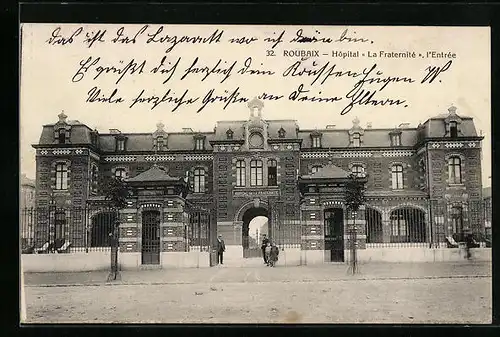 das ist das Lazarett wo ich drin bin.
32. ROUBAIX — Hôpital « La Fraternité », l'Entrée
Es grüßt dich herzlich dein
Viele herzliche Grüße an deine Eltern.